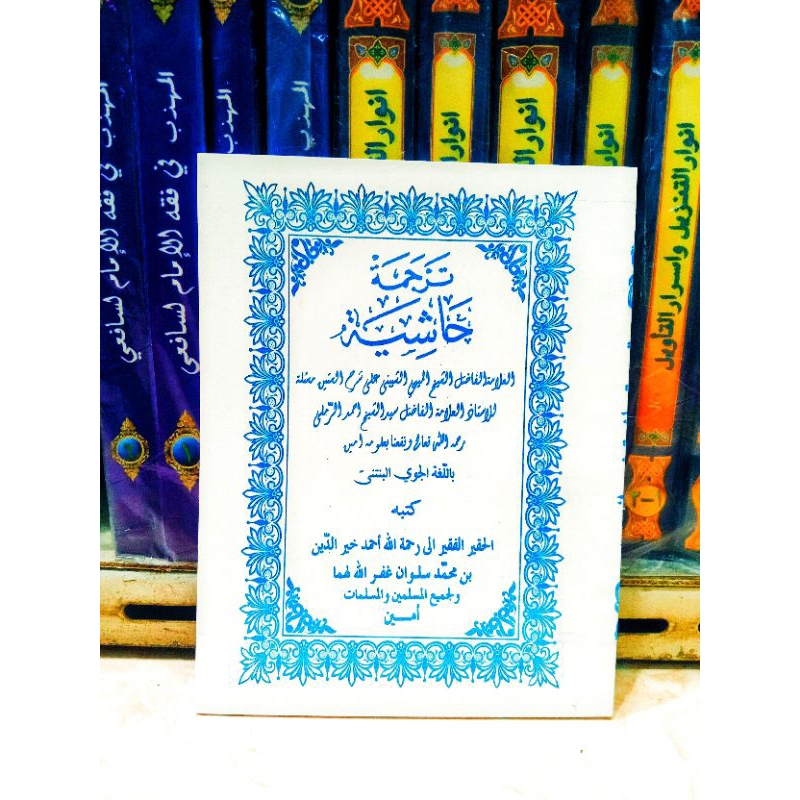 المهذب في فقه الإمام لشافعي
المهذب في فقه الإمام لشافعي
المهذب
المهذب
انوار
انوار
انوار
انوار
انوار التنزيل واسرار التأويل
تَرْجَمَةْ
حَاشِيَةْ
العلامة الفاضل الشيخ الميهي الشيبيني على شرح الستين مسئلة
للاستاذ العلامة الفاضل سيد الشيخ احمد الرّملي
رحمه الله تعالى ونفعنا بعلومه امين
باللّغة الجوي البنتنى
كتبه
الحقير الفقير الى رحمة الله أحمد خير الدّين
بن محمّد سلوان غفر الله لهما
ولجميع المسلمين والمسلمات
أمين